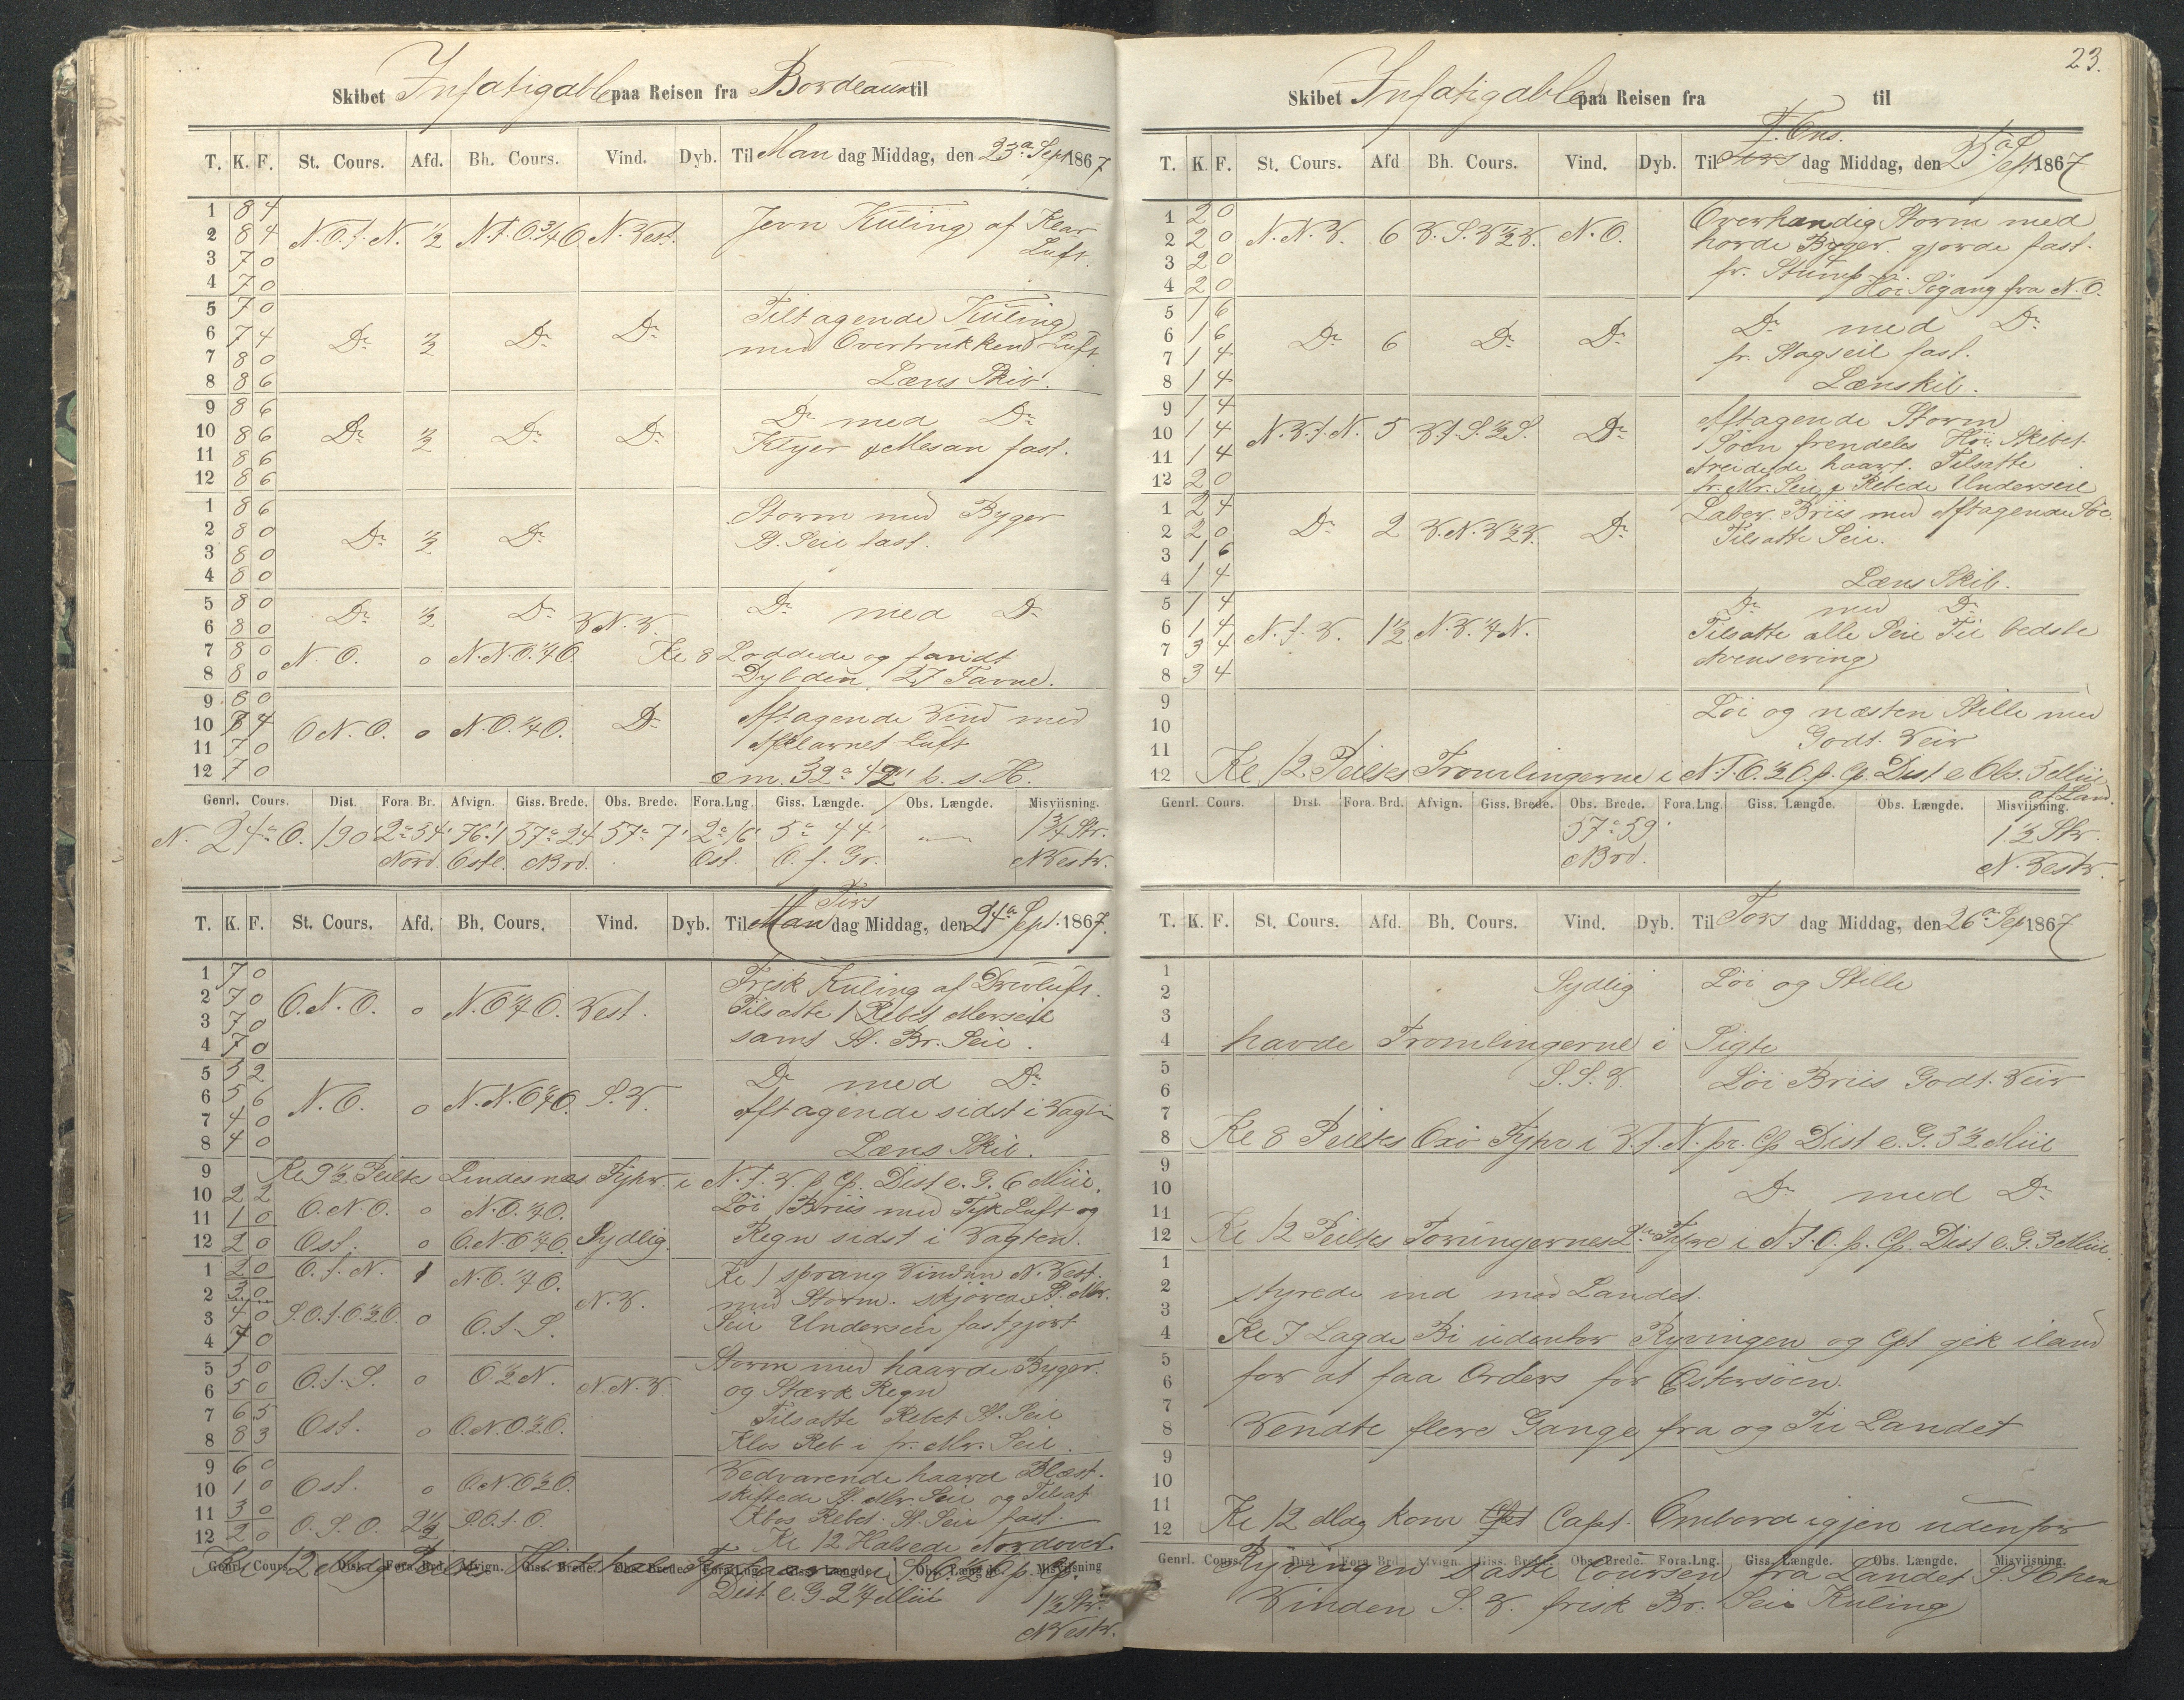 Skibet Infatigable paa Reisen fra Bordeaux til
T. K. F. St. Cours. Afd. Bh. Cours. Vind. Dyb. Til Man dag Middag, den 23a Sept 1867
1 8 4
2 8 4 N.O.t.N. ½ N.t.O.¾O. N.Vest. Jevn Kuling af Klar
3 7 0 Luft.
4 7 0
5 7 0 Tiltagende Kuling
6 7 4 Do ½ Do Do med Overtrukken Luft
7 8 0
8 8 6 Læns Skib.
9 8 6 Do med Do
10 8 6 Do ½ Do Do Klyver & Mesan fast.
11 8 6
12 8 6
1 8 6 Storm med Byger
2 8 0 Do ½ Do St. Seil fast.
3 8 0
4 8 0
5 8 0 Do ½ Do Do med Do
6 8 0 V.N.V.
7 8 0 N.O. 0 N.N.O.¼O. Kl 8 Loddede og fandt
8 8 0 Dybden 27 Favne.
9 8 0 Aftagende Vind med
10 8 4 O.N.O. 0 N.O.¼O. Do Afklarnet Luft
11 7 0
12 7 0 cm. 32° 42' b. s. H.
Genrl. Cours. Dist. Fora. Br. Afvign. Giss. Brede. Obs. Brede. Fora.Lng. Giss. Længde. Obs. Længde. Misviisning.
N. 24° O. 190 2° 54' 76.1 57° 24' 57° 7' 2° 16' 5° 44' — 1¾ Str.
Nord. Ostl. Nrd. Ost. O. f. Gr. NVestr.
Tirs
T. K. F. St. Cours. Afd. Bh. Cours. Vind. Dyb. Til Man dag Middag, den 24a Sept. 1867.
1 7 0 Frisk Kuling af Drivluft.
2 7 0 O.N.O. 0 N.O.¼O. Vest. Tilsatte 1 Rebet Merseil
3 7 0
4 7 0 samt St. Br. Seil.
5 5 2 Do med Do
6 5 6 N.O. 0 N.N.O.¼O. S.V. Aftagende sidst i Vagten
7 4 0
8 4 0 Læns Skib.
9 Kl 9½ Peiltes Lindesnæs Fyhr. i N.t.V. p Cp. Dist e. G. 6 Miil.
10 2 2 O.N.O. 0 N.O.¼O. Löi Briis med Tyk Luft og
11 1 0
12 2 0 Ost. 0 O.N.O.¼O. Sydlig. Regn sidst i Vagten.
1 2 0 O.t.N. 1 N.O.¼O. Kl 1 sprang Vinden N.Vest.
2 3 0 N.V. med Storm. skjörede St. Mr.
3 4 0 S.O.t.O.½O. 0 O.t.S. Seil Underseil fastgjort
4 7 0
5 5 0 Storm med haarde Byger.
6 5 0 O.t.S. 0 O.½N. N.N.V. og Stærk Regn
7 6 5 Tilsatte Rebet St. Seil
8 8 3 Ost. 0 O.N.O.½O. Klos Reb i fr. Mr. Seil.
9 6 0 Vedvarende haard Blæst.
10 1 0 Ost. 0 O.N.O.½O. skiftede St. Mr. Seil og Tilsat
11 3 0 Klos Rebet. St. Seil fast.
12 2 0 O.S.O. 2½ S.O.t.O. Kl 12 Halsede Nordover.
Genrl. Cours. Dist. Fora. Brd. Afvign. Giss. Brede. Obs. Brede. Fora.Lng. Giss. Længde. Obs. Længde. Misviisning
Kl 12 Mdg Peiltes
Dist e. G. 2¼ Miil 1½ Str.
NVestr.
23.
Skibet Infatigable paa Reisen fra til
T. Ons.
T. K. F. St. Cours. Afd Bh. Cours. Vind. Dyb. Til Tors dag Middag, den 25a Sept 1867
1 2 0 Overhændig Storm med
2 2 0 N.N.V. 6 V.S.V.½V. N.O. horde Byger. gjorde fast.
3 2 0 fr. Stump
4 2 0 Höi Sögang fra N.O.
5 1 6 Do med Do
6 1 6 Do 6 Do Do fr. Stagseil fast.
7 1 4
8 1 4 Lænskib.
9 1 4 Aftagende Storm
10 1 4 N.V.t.N. 5 V.t.S.½S. Do Söen fremdeles Höi Skibet
11 1 4 Areidede haart. Tilsatte
12 2 0 fr. Mr. Seil & Rebede Underseil
1 2 4 Laber. Briis med Aftagende Söe.
2 2 0 Do 2 V.N.V.½V. Do Tilsatte Seil.
3 1 6
4 1 4 Læns Skib.
5 1 4 Do med Do
6 1 4 N.t.V. 1½ N.V.¼N. Tilsatte alle Seil Til bedste
7 3 4 Avensering
8 3 4
9 Löi og næsten Stille med
10 Godt. Veir
11
12 Kl 12 Peiltes Tromlingerne i N.t.O.½O. p. Cp. Dist e Obs. 5 Miil
af Land.
Genrl. Cours. Dist. Fora. Brd. Afvign. Giss. Brede. Obs. Brede. Fora.Lng. Giss. Længde. Obs. Længde. Misviisning.
57° 59' 1½ Str.
Nrd. N.Vestr.
T. K. F. St. Cours. Afd. Bh. Cours. Vind. Dyb. Til Tors dag Middag, den 26a Sep 1867
1 Sydlig Löi og Stille
2
3
4 havde Tromlingerne i Sigte
5 S.S.V. Löi Briis Godt. Veir
6
7
8 Kl 8 Peiltes Oxö Fyhr i V.t.N. pr. Cp Dist e. G. 3½ Miil
9
10 Do med Do
11
12 Kl 12 Peiltes Torungernes 2de Fyhre i N.t.O. p. Cp. Dist e. G. 3 Miil.
1
2 styrede ind mod Landet.
3
4 Kl 7 Lagde Bi udenfor Ryvingen og Cpt gik iland
5
6 for at faa Orders for Östersöen.
7
8 Vendte flere Gange fra og Til Landet
9
10
11
12 Kl 12 Mdg kom Cpt Capt. Ombord igjen udenfor
Genrl. Cours. Dist. Fora. Brd. Afvign. Giss. Brede. Obs. Brede. Fora.Lng. Giss. Længde. Obs. Længde. Misviisning.
Ryvingen satte Coursen fra Landet S.S.O hen
Vinden S.V. frisk Br. Seil Kuling